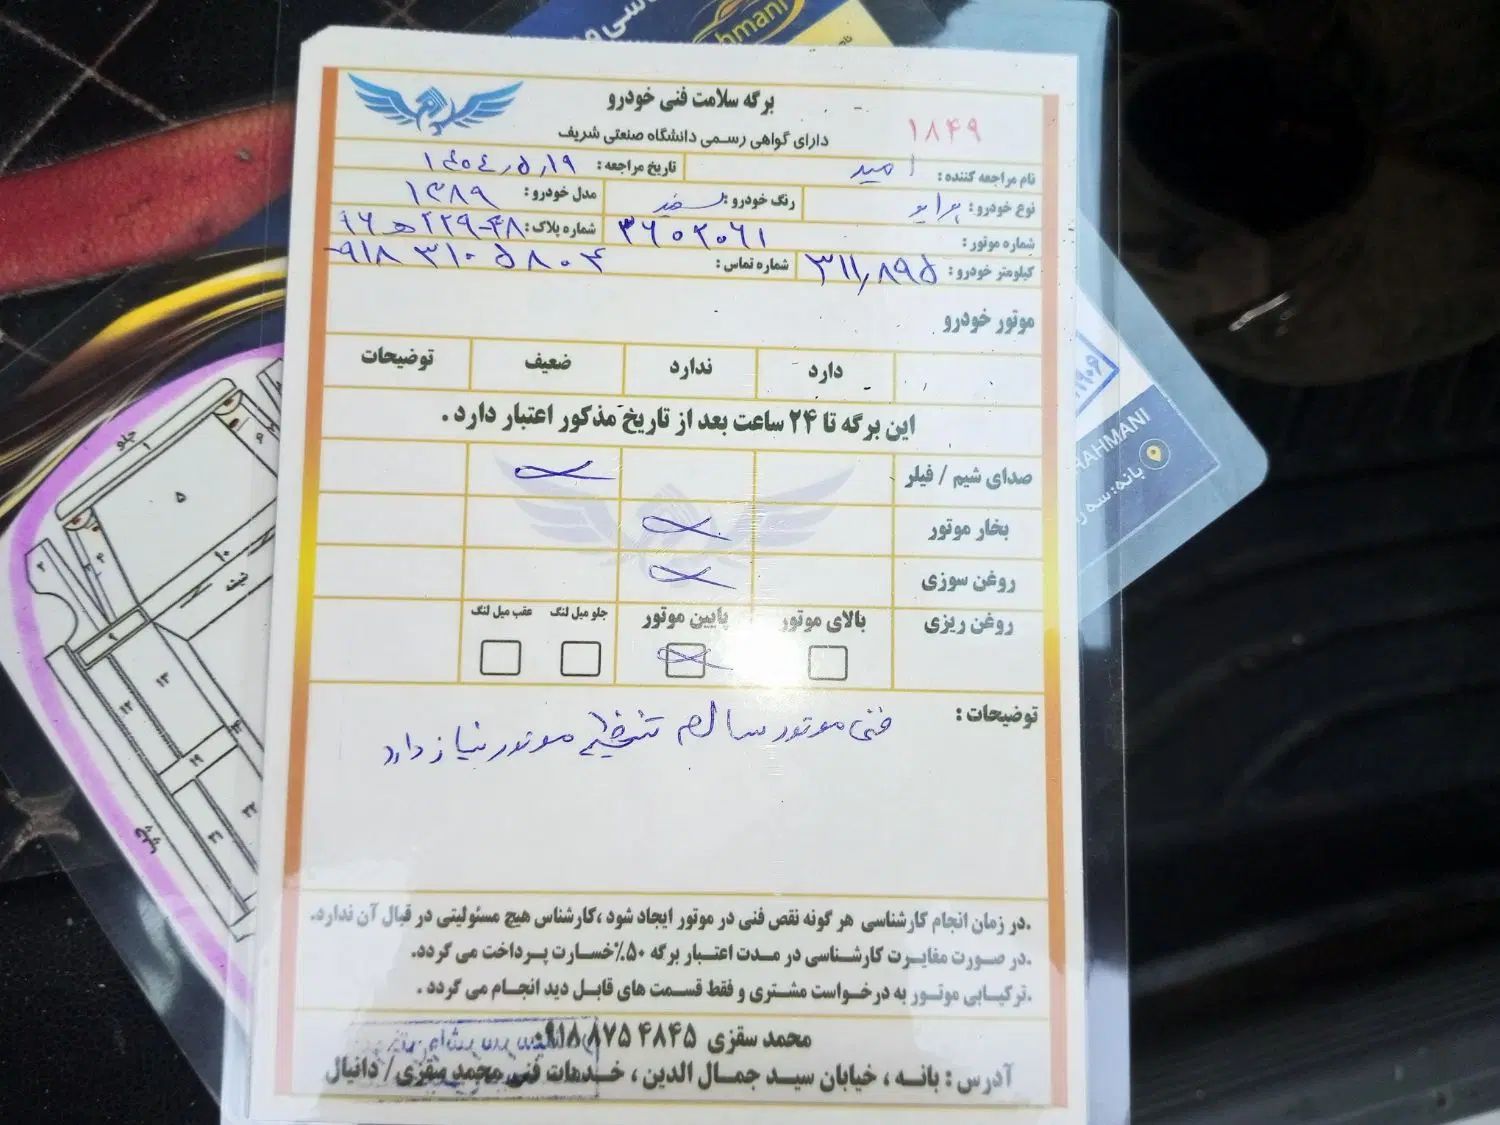 برگه سلامت فنی خودرو
دارای گواهی رسمی دانشگاه صنعتی شریف
۱۸۴۹
نام مراجعه کننده : امید
تاریخ مراجعه : ۱۴۰۴٫۵٫۱۹
نوع خودرو : پراید
رنگ خودرو : سفید
مدل خودرو : ۱۳۸۹
شماره موتور : ۳۶۰۲۰۶۱
شماره پلاک :
کیلومتر خودرو : ۳۱۱٫۸۹۵
شماره تماس : ۰۹۱۸ ۳۱۰ ۵۸۰۴
موتور خودرو
دارد ندارد ضعیف توضیحات
این برگه تا ۲۴ ساعت بعد از تاریخ مذکور اعتبار دارد .
صدای شیم / فیلر
بخار موتور
روغن سوزی
روغن ریزی بالای موتور پایین موتور جلو میل لنگ عقب میل لنگ
توضیحات : فنی موتور سالم تنظیم موتور نیاز دارد
.در زمان انجام کارشناسی هر گونه نقص فنی در موتور ایجاد شود ،کارشناس هیچ مسئولیتی در قبال آن ندارد.
.در صورت مغایرت کارشناسی در مدت اعتبار برگه ۵۰٪خسارت پرداخت می گردد.
.ترکیابی موتور به درخواست مشتری و فقط قسمت های قابل دید انجام می گردد .
محمد سقزی ۰۹۱۸ ۸۷۵ ۴۸۴۵
آدرس : بانه ، خیابان سید جمال الدین ، خدمات فنی محمد سقزی/ دانیال
hmani
RAHMANI
بانه: سه
جلو
۱
۹
۵
۱۰
۲
۴
۱۳
۱۲
۱۹